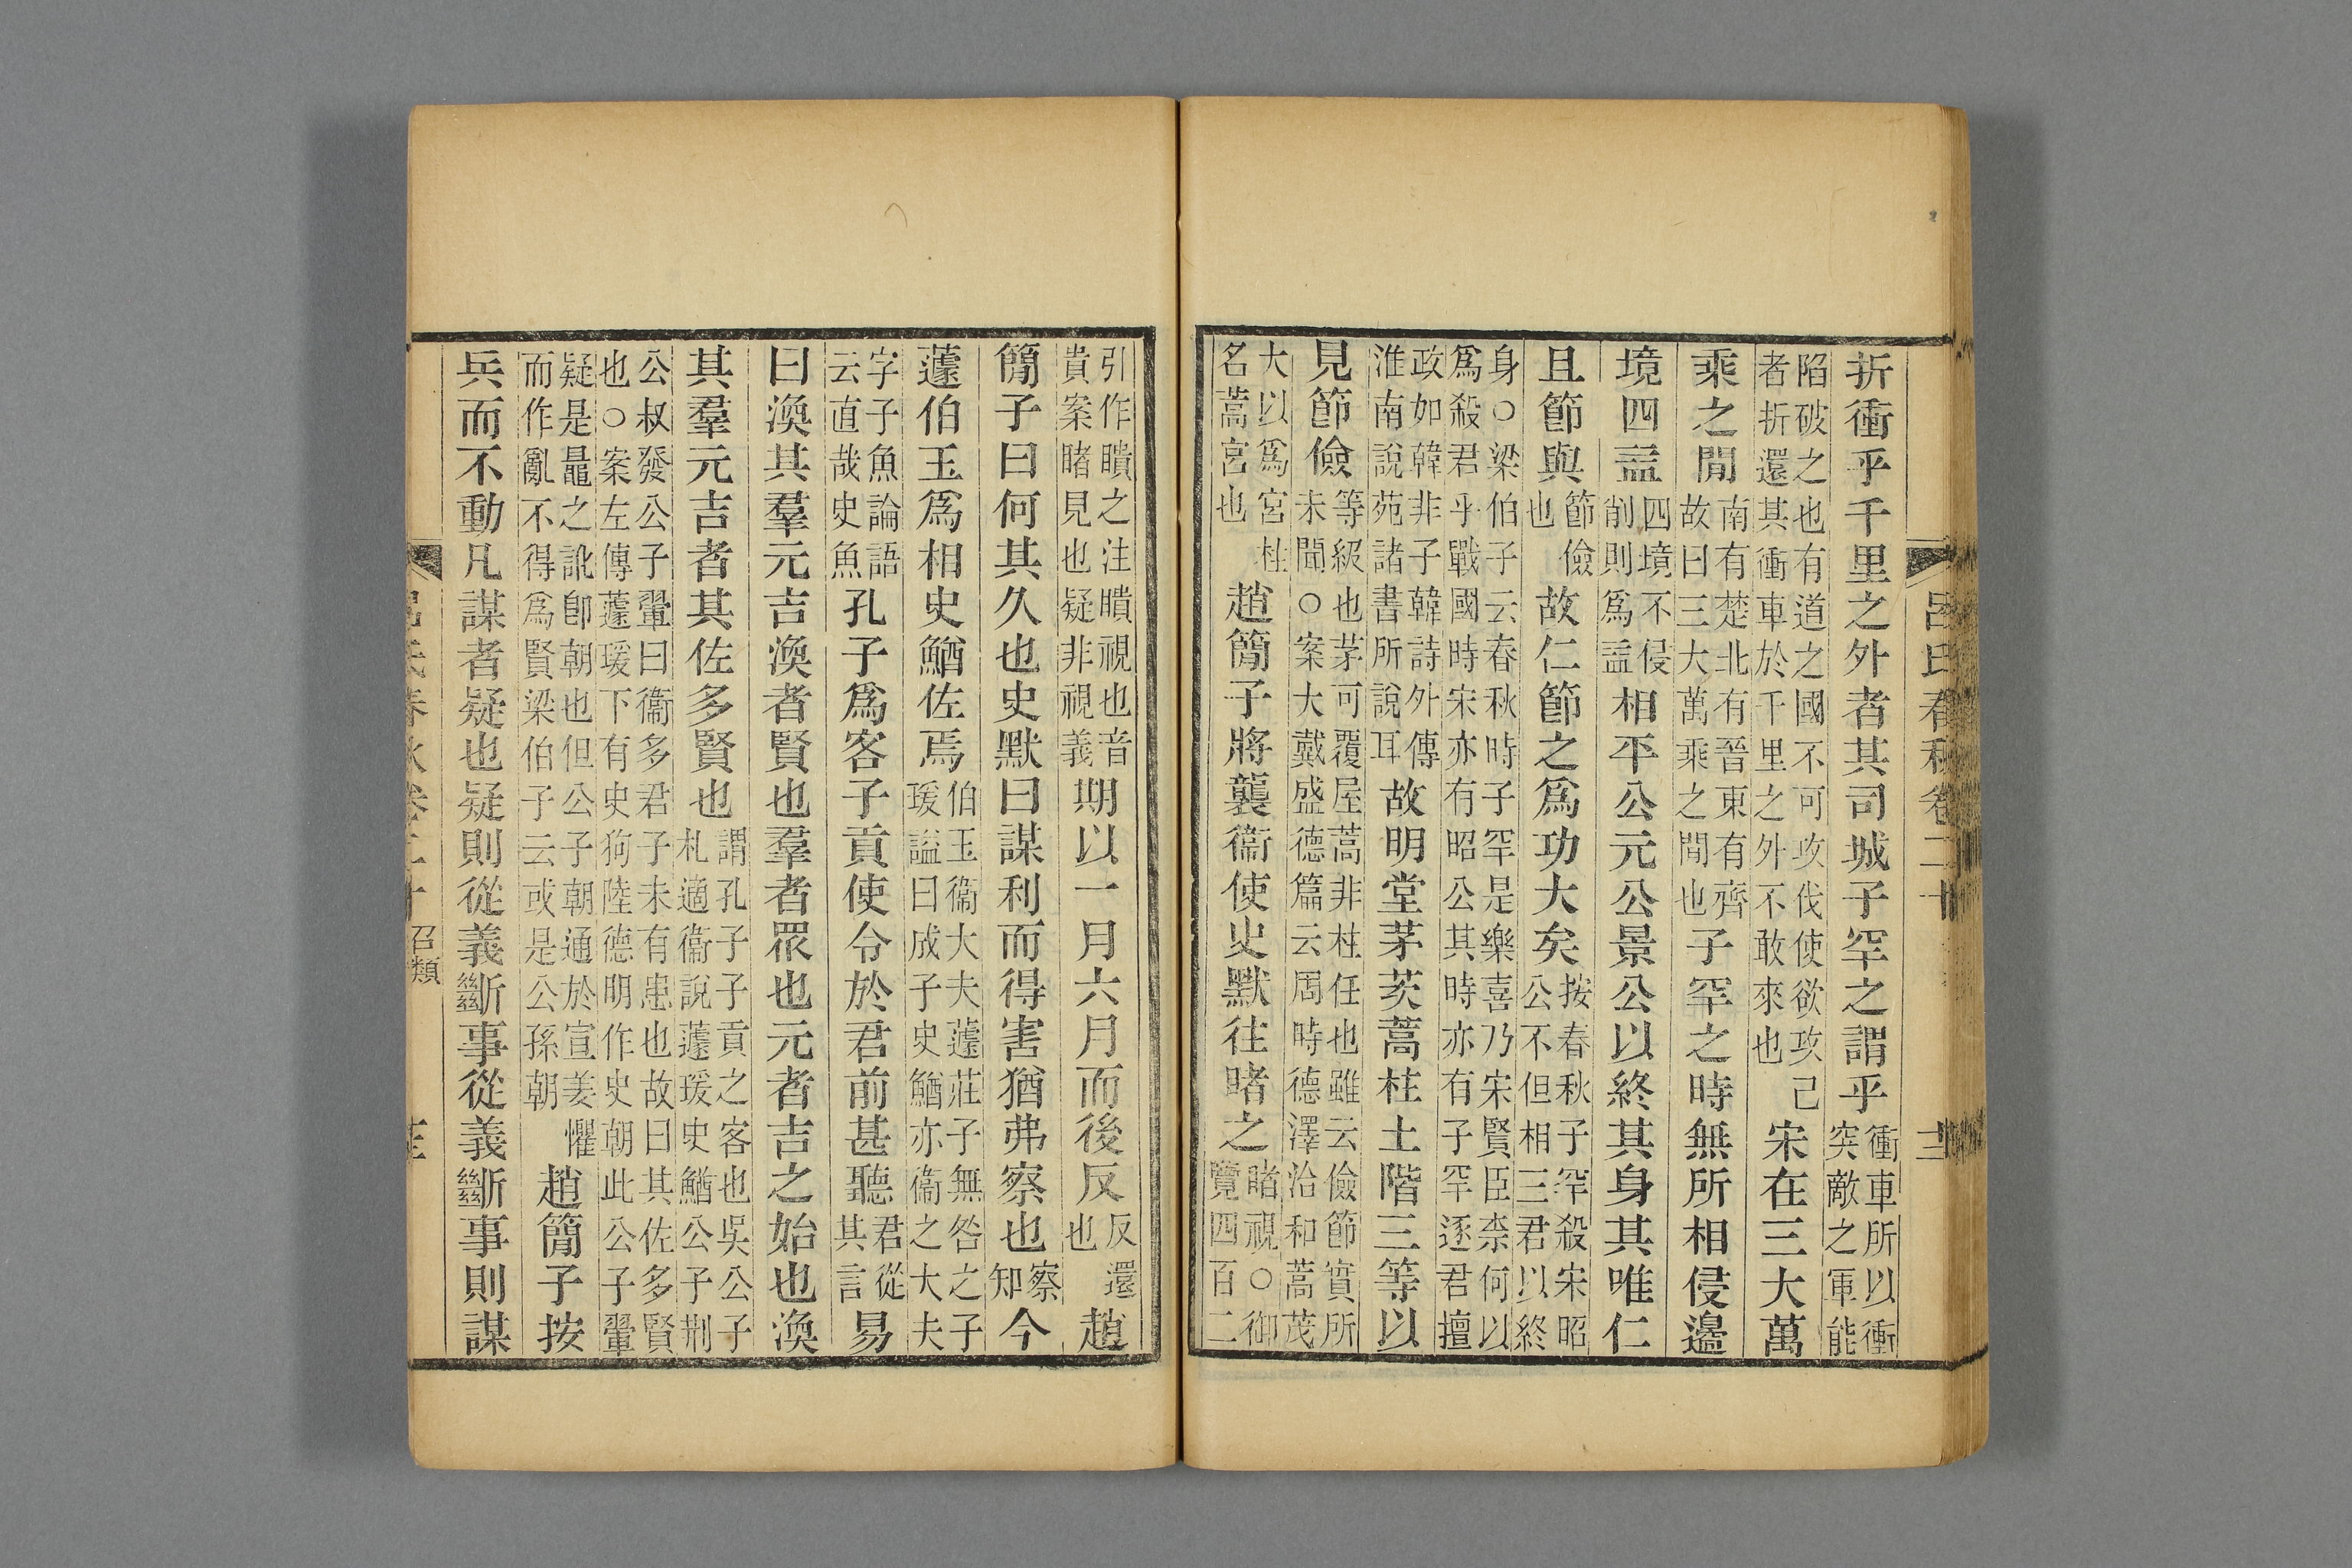 呂氏春秋卷二十
折衝乎千里之外者其司城子罕之謂乎衝車所以衝突敵之軍能
陷破之也有道之國不可攻伐使欲攻己者折還其衝車於千里之外不敢來也宋在三大萬
乘之閒南有楚北有晉東有齊故曰三大萬乘之閒也子罕之時無所相侵邊
境四益四境不侵削則爲益相平公元公景公以終其身其唯仁
且節與節儉也故仁節之爲功大矣按春秋子罕殺宋昭公不但相三君以終
身○梁伯子云春秋時子罕是樂喜乃宋賢臣柰何以爲殺君乎戰國時宋亦有昭公其時亦有子罕逐君擅
政如韓非子韓詩外傳淮南說苑諸書所說耳故明堂茅茨蒿柱土階三等以
見節儉等級也茅可覆屋蒿非柱任也雖云儉節實所未聞○案大戴盛德篇云周時德澤洽和蒿茂
大以爲宮柱名蒿宮也趙簡子將襲衞使史默往睹之睹視○御覽四百二
引作瞶之注瞶視也音貴案睹見也疑非視義期以一月六月而後反反還也趙
簡子曰何其久也史默曰謀利而得害猶弗察也察知今
蘧伯玉爲相史鰌佐焉伯玉衞大夫蘧莊子無咎之子瑗謚曰成子史鰌亦衞之大夫
字子魚論語云直哉史魚孔子爲客子貢使令於君前甚聽君從其言易
曰渙其羣元吉渙者賢也羣者眾也元者吉之始也渙
其羣元吉者其佐多賢也謂孔子子貢之客也吳公子札適衞說蘧瑗史鰌公子荆
公叔發公子翬曰衞多君子未有患也故曰其佐多賢也○案左傳蘧瑗下有史狗陸德明作史朝此公子翬
疑是鼂之訛卽朝也但公子朝通於宣姜懼而作亂不得爲賢梁伯子云或是公孫朝趙簡子按
兵而不動凡謀者疑也疑則從義斷事從義斷事則謀
召類